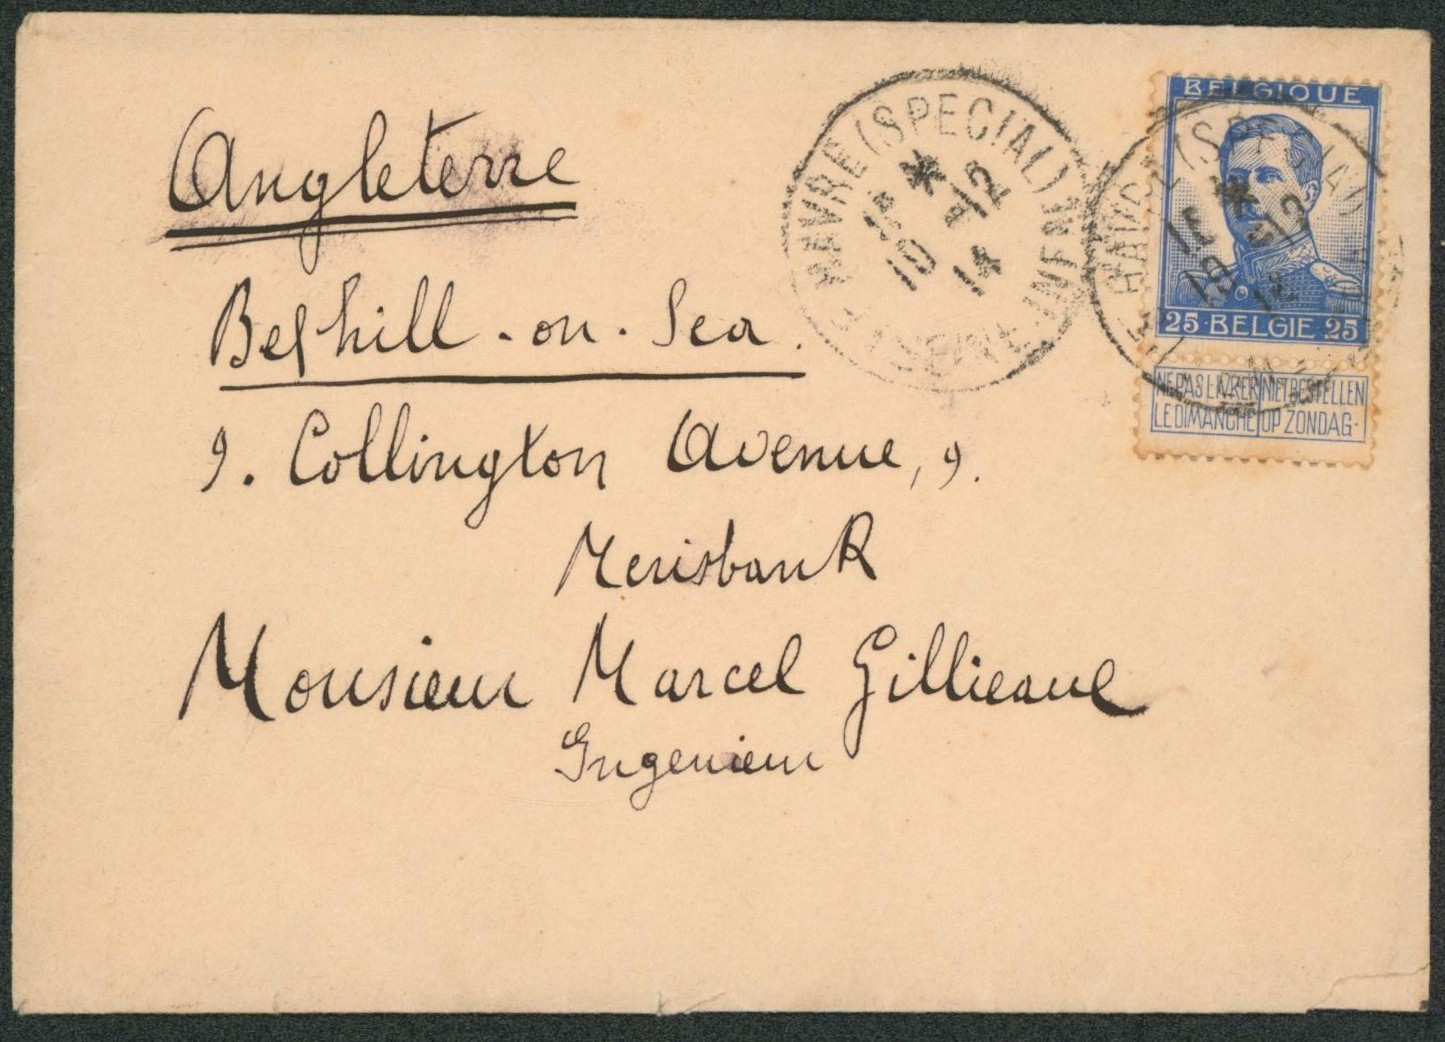 Angleterre
Bexhill-on-Sea.
9. Collington Avenue, 9.
Merisbank
Monsieur Marcel Gillieaux
Ingenieur
HAVRE (SPECIAL)
10 12
14
BELGIQUE
25·BELGIE·25
NE PAS LIVRER NIET BESTELLEN
LE DIMANCHE OP ZONDAG·